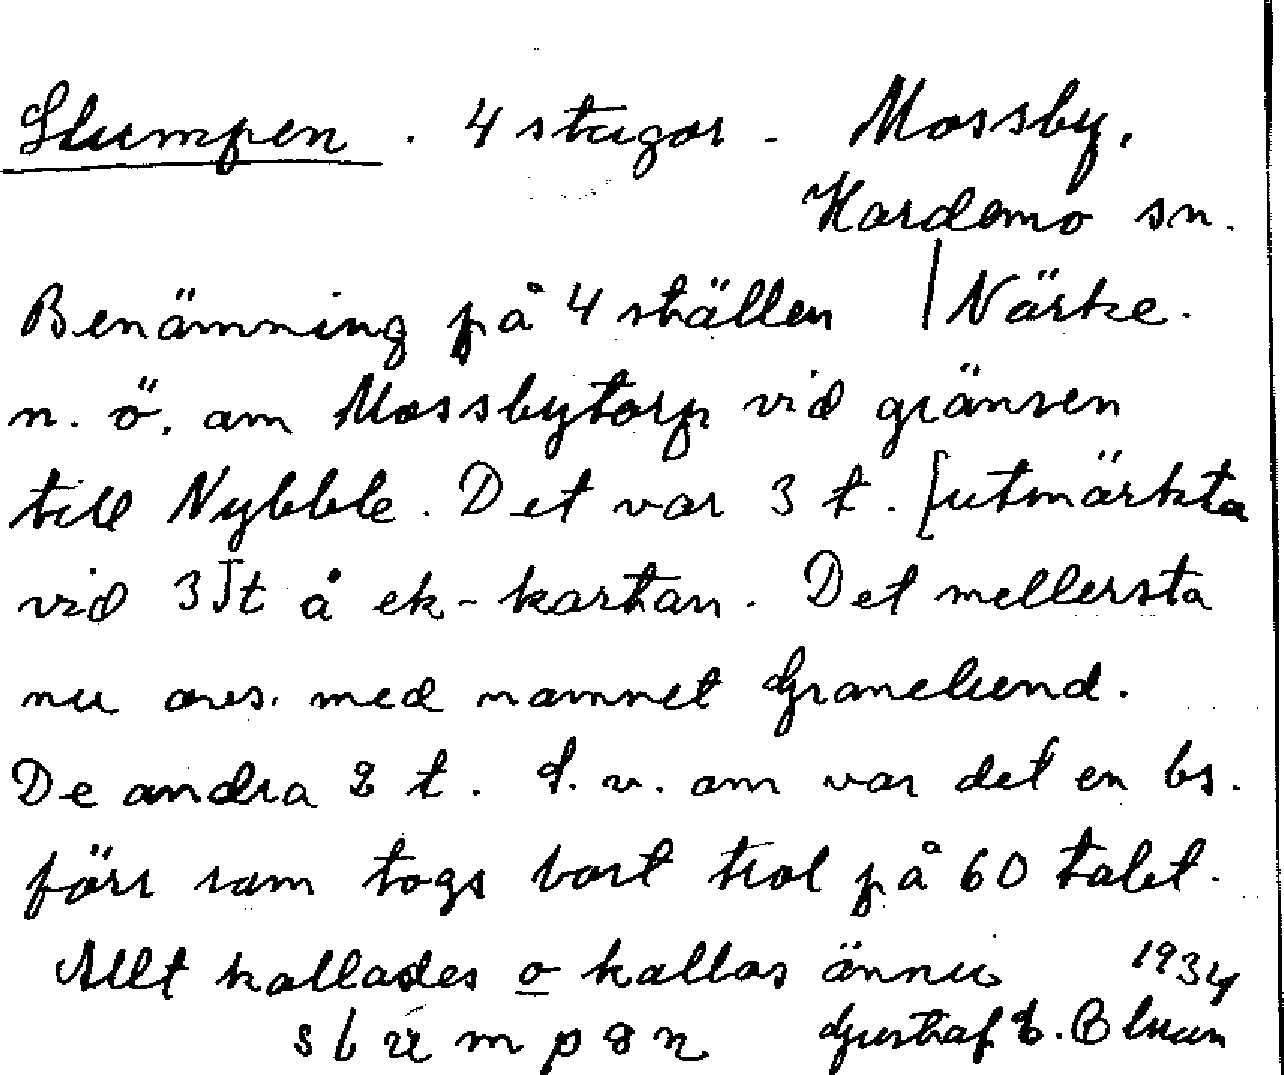 Slumpen. 4 stugor - Mossby,
Hardemo sn.
Benämning på 4 ställen | Närke.
n. ö. om Mossbytorp vid gränsen
till Nybble. Det var 3 t. [utmärkta
vid 3 t å ek-kartan. Det mellersta
nu avs. med namnet Granelund.
De andra 2 t. d. v. om var det en bs.
förr som togs bort trol på 60 talet.
Allt kallades o kallas ännu 1934
slumpen Gustaf E.